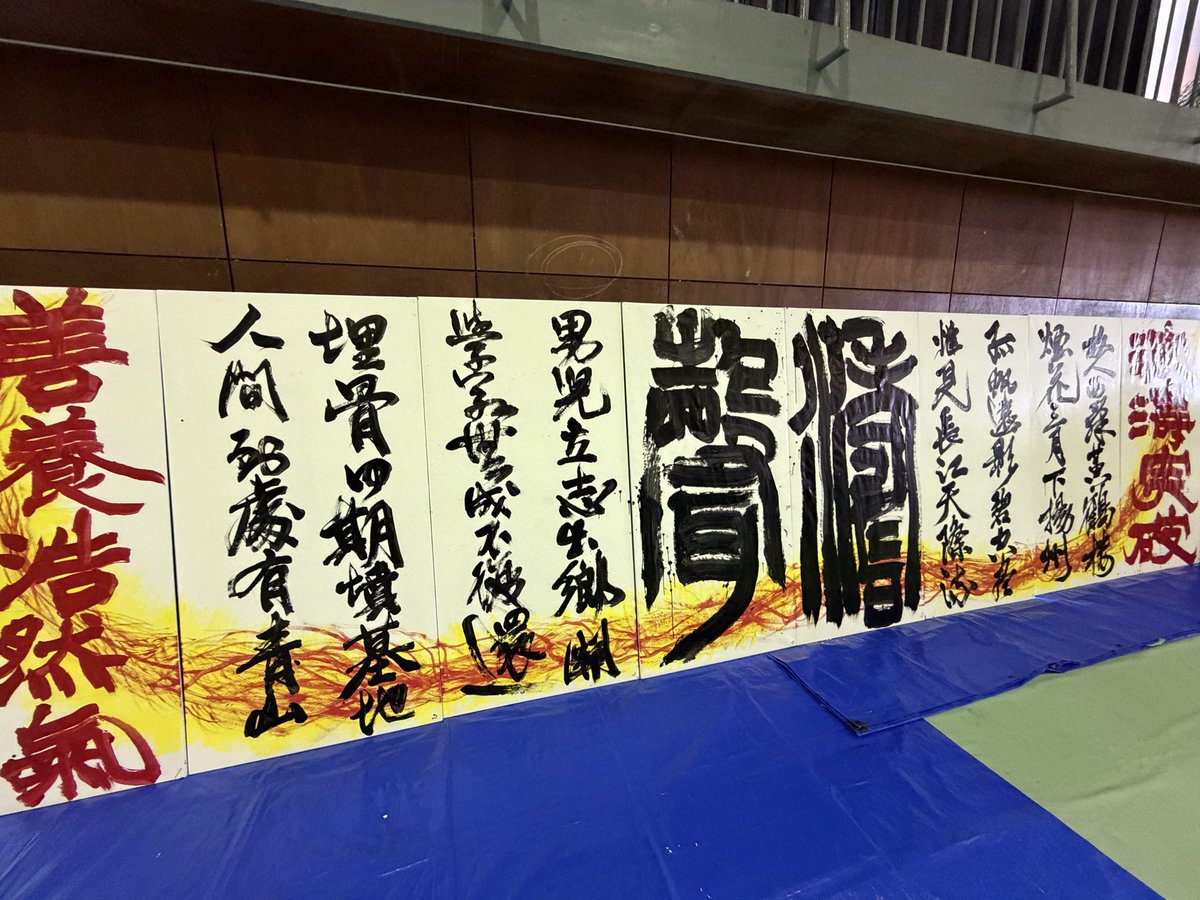 故人西辞黄鶴楼
煙花三月下揚州
孤帆遠影碧空尽
惟見長江天際流
男児立志出郷関
學若無成不復還
埋骨何期墳墓地
人間到處有青山
善養浩然氣